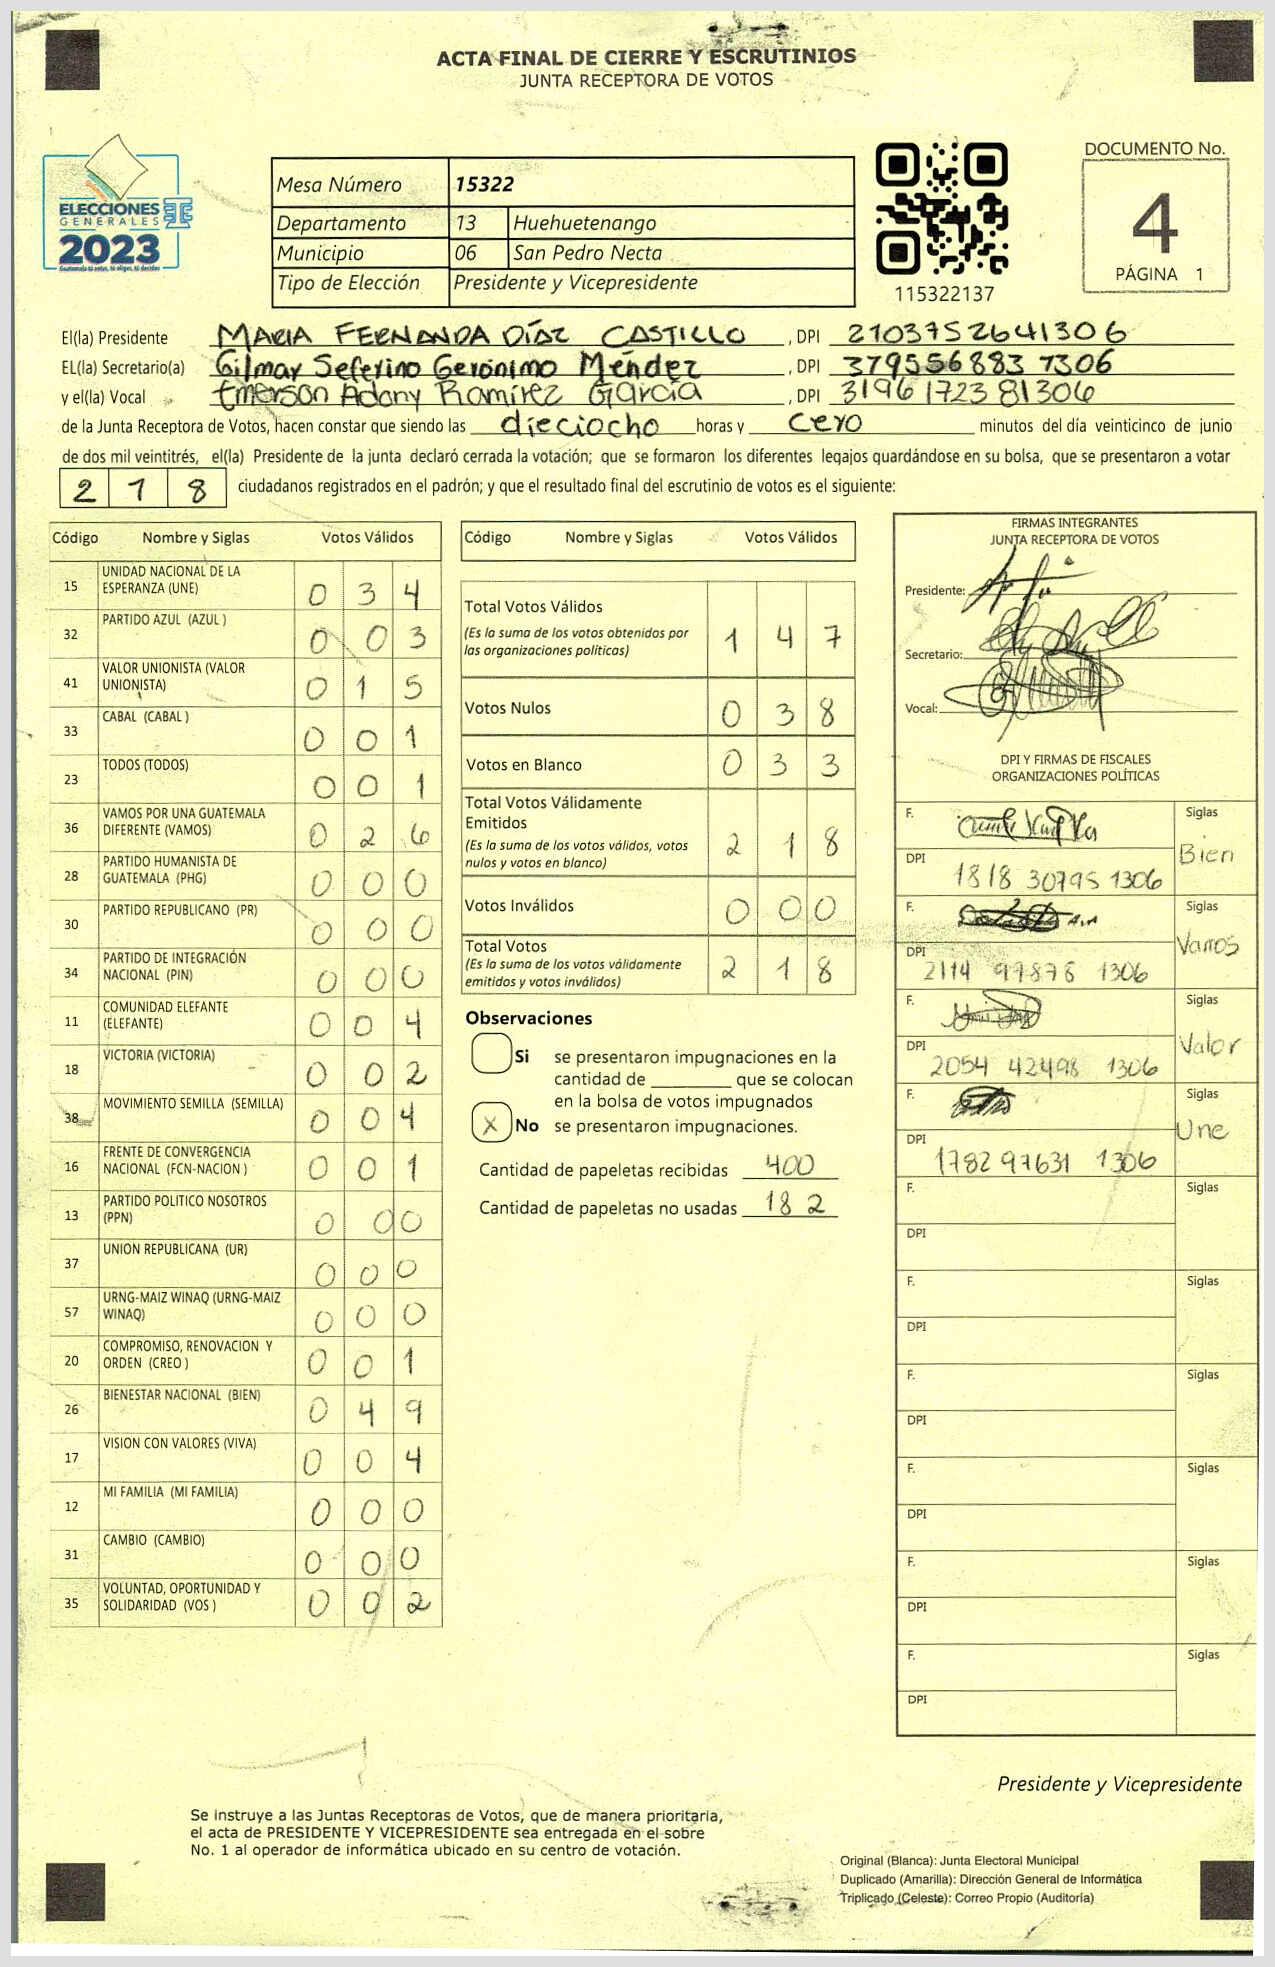 ACTA FINAL DE CIERRE Y ESCRUTINIOS
JUNTA RECEPTORA DE VOTOS
ELECCIONES
GENERALES
2023
Mesa Número 15322
Departamento 13 Huehuetenango
Municipio 06 San Pedro Necta
Tipo de Elección Presidente y Vicepresidente
115322137
DOCUMENTO No.
4
PÁGINA 1
El(la) Presidente MARIA FERNANDA DÍAZ CASTILLO, DPI 2103752641306
EL(la) Secretario(a) Gilmar Seferino Gerónimo Méndez, DPI 379556883 1306
y el(la) Vocal Emerson Adony Ramírez García, DPI 3196172381306
de la Junta Receptora de Votos, hacen constar que siendo las dieciocho horas y cero minutos del día veinticinco de junio
de dos mil veintitrés, el(la) Presidente de la junta declaró cerrada la votación; que se formaron los diferentes legajos guardándose en su bolsa, que se presentaron a votar
2 1 8 ciudadanos registrados en el padrón; y que el resultado final del escrutinio de votos es el siguiente:
Código Nombre y Siglas Votos Válidos
15 UNIDAD NACIONAL DE LA ESPERANZA (UNE) 0 3 4
32 PARTIDO AZUL (AZUL ) 0 0 3
41 VALOR UNIONISTA (VALOR UNIONISTA) 0 1 5
33 CABAL (CABAL ) 0 0 1
23 TODOS (TODOS) 0 0 1
36 VAMOS POR UNA GUATEMALA DIFERENTE (VAMOS) 0 2 6
28 PARTIDO HUMANISTA DE GUATEMALA (PHG) 0 0 0
30 PARTIDO REPUBLICANO (PR) 0 0 0
34 PARTIDO DE INTEGRACIÓN NACIONAL (PIN) 0 0 0
11 COMUNIDAD ELEFANTE (ELEFANTE) 0 0 4
18 VICTORIA (VICTORIA) 0 0 2
38 MOVIMIENTO SEMILLA (SEMILLA) 0 0 4
16 FRENTE DE CONVERGENCIA NACIONAL (FCN-NACION ) 0 0 1
13 PARTIDO POLITICO NOSOTROS (PPN) 0 0 0
37 UNION REPUBLICANA (UR) 0 0 0
57 URNG-MAIZ WINAQ (URNG-MAIZ WINAQ) 0 0 0
20 COMPROMISO, RENOVACION Y ORDEN (CREO ) 0 0 1
26 BIENESTAR NACIONAL (BIEN) 0 4 9
17 VISION CON VALORES (VIVA) 0 0 4
12 MI FAMILIA (MI FAMILIA) 0 0 0
31 CAMBIO (CAMBIO) 0 0 0
35 VOLUNTAD, OPORTUNIDAD Y SOLIDARIDAD (VOS ) 0 0 2
Código Nombre y Siglas Votos Válidos
Total Votos Válidos 1 4 7
(Es la suma de los votos obtenidos por
las organizaciones políticas)
Votos Nulos 0 3 8
Votos en Blanco 0 3 3
Total Votos Válidamente
Emitidos 2 1 8
(Es la suma de los votos válidos, votos
nulos y votos en blanco)
Votos Inválidos 0 0 0
Total Votos 2 1 8
(Es la suma de los votos válidamente
emitidos y votos inválidos)
Observaciones
Si se presentaron impugnaciones en la
cantidad de ________ que se colocan
en la bolsa de votos impugnados
X No se presentaron impugnaciones.
Cantidad de papeletas recibidas 400
Cantidad de papeletas no usadas 182
FIRMAS INTEGRANTES
JUNTA RECEPTORA DE VOTOS
Presidente:
Secretario:
Vocal:
DPI Y FIRMAS DE FISCALES
ORGANIZACIONES POLÍTICAS
F. Siglas Bien
DPI 1818 30795 1306
F. Siglas Vamos
DPI 2114 97878 1306
F. Siglas Valor
DPI 2054 42498 1306
F. Siglas Une
DPI 1782 97631 1306
F. Siglas
DPI
F. Siglas
DPI
F. Siglas
DPI
F. Siglas
DPI
F. Siglas
DPI
F. Siglas
DPI
Presidente y Vicepresidente
Se instruye a las Juntas Receptoras de Votos, que de manera prioritaria,
el acta de PRESIDENTE Y VICEPRESIDENTE sea entregada en el sobre
No. 1 al operador de informática ubicado en su centro de votación.
Original (Blanca): Junta Electoral Municipal
Duplicado (Amarilla): Dirección General de Informática
Triplicado (Celeste): Correo Propio (Auditoría)